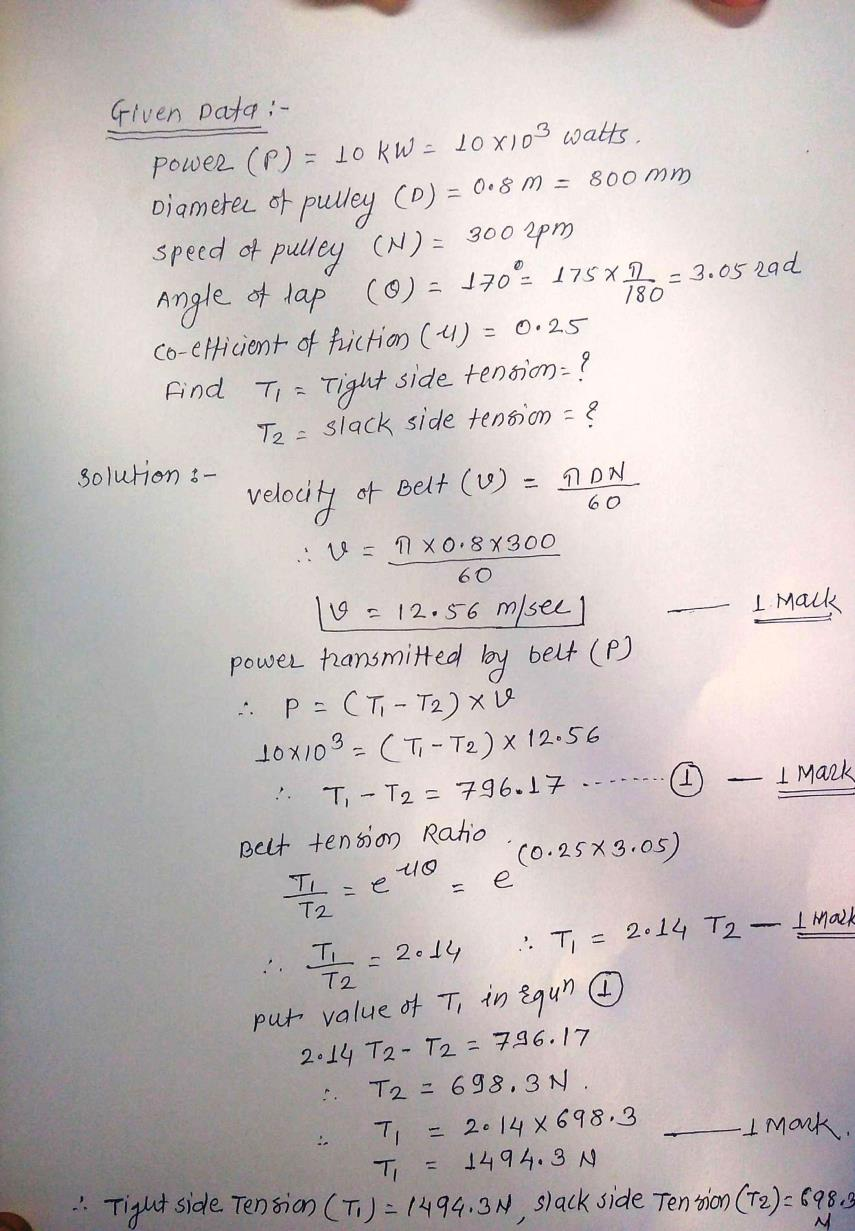 Given Data :-
Power (P) = 10 KW = 10 X 10³ watts.
Diameter of pulley (D) = 0.8 m = 800 mm
Speed of pulley (N) = 300 rpm
Angle of lap (θ) = 170° = 175 X π/180 = 3.05 rad
Co-efficient of friction (μ) = 0.25
Find T₁ = Tight side tension = ?
T₂ = Slack side tension = ?
Solution :-
Velocity of Belt (v) = πDN/60
∴ v = π X 0.8 X 300/60
v = 12.56 m/sec — 1 Mark
Power transmitted by belt (P)
∴ P = (T₁ - T₂) X v
10X10³ = (T₁ - T₂) X 12.56
∴ T₁ - T₂ = 796.17 ........ ① — 1 Mark
Belt tension Ratio
T₁/T₂ = e^μθ = e^(0.25 X 3.05)
∴ T₁/T₂ = 2.14 ∴ T₁ = 2.14 T₂ — 1 Mark
put value of T₁ in Equn ①
2.14 T₂ - T₂ = 796.17
∴ T₂ = 698.3 N.
∴ T₁ = 2.14 X 698.3 — 1 Mark.
T₁ = 1494.3 N
∴ Tight side Tension (T₁) = 1494.3N, Slack side Tension (T₂) = 698.3
N